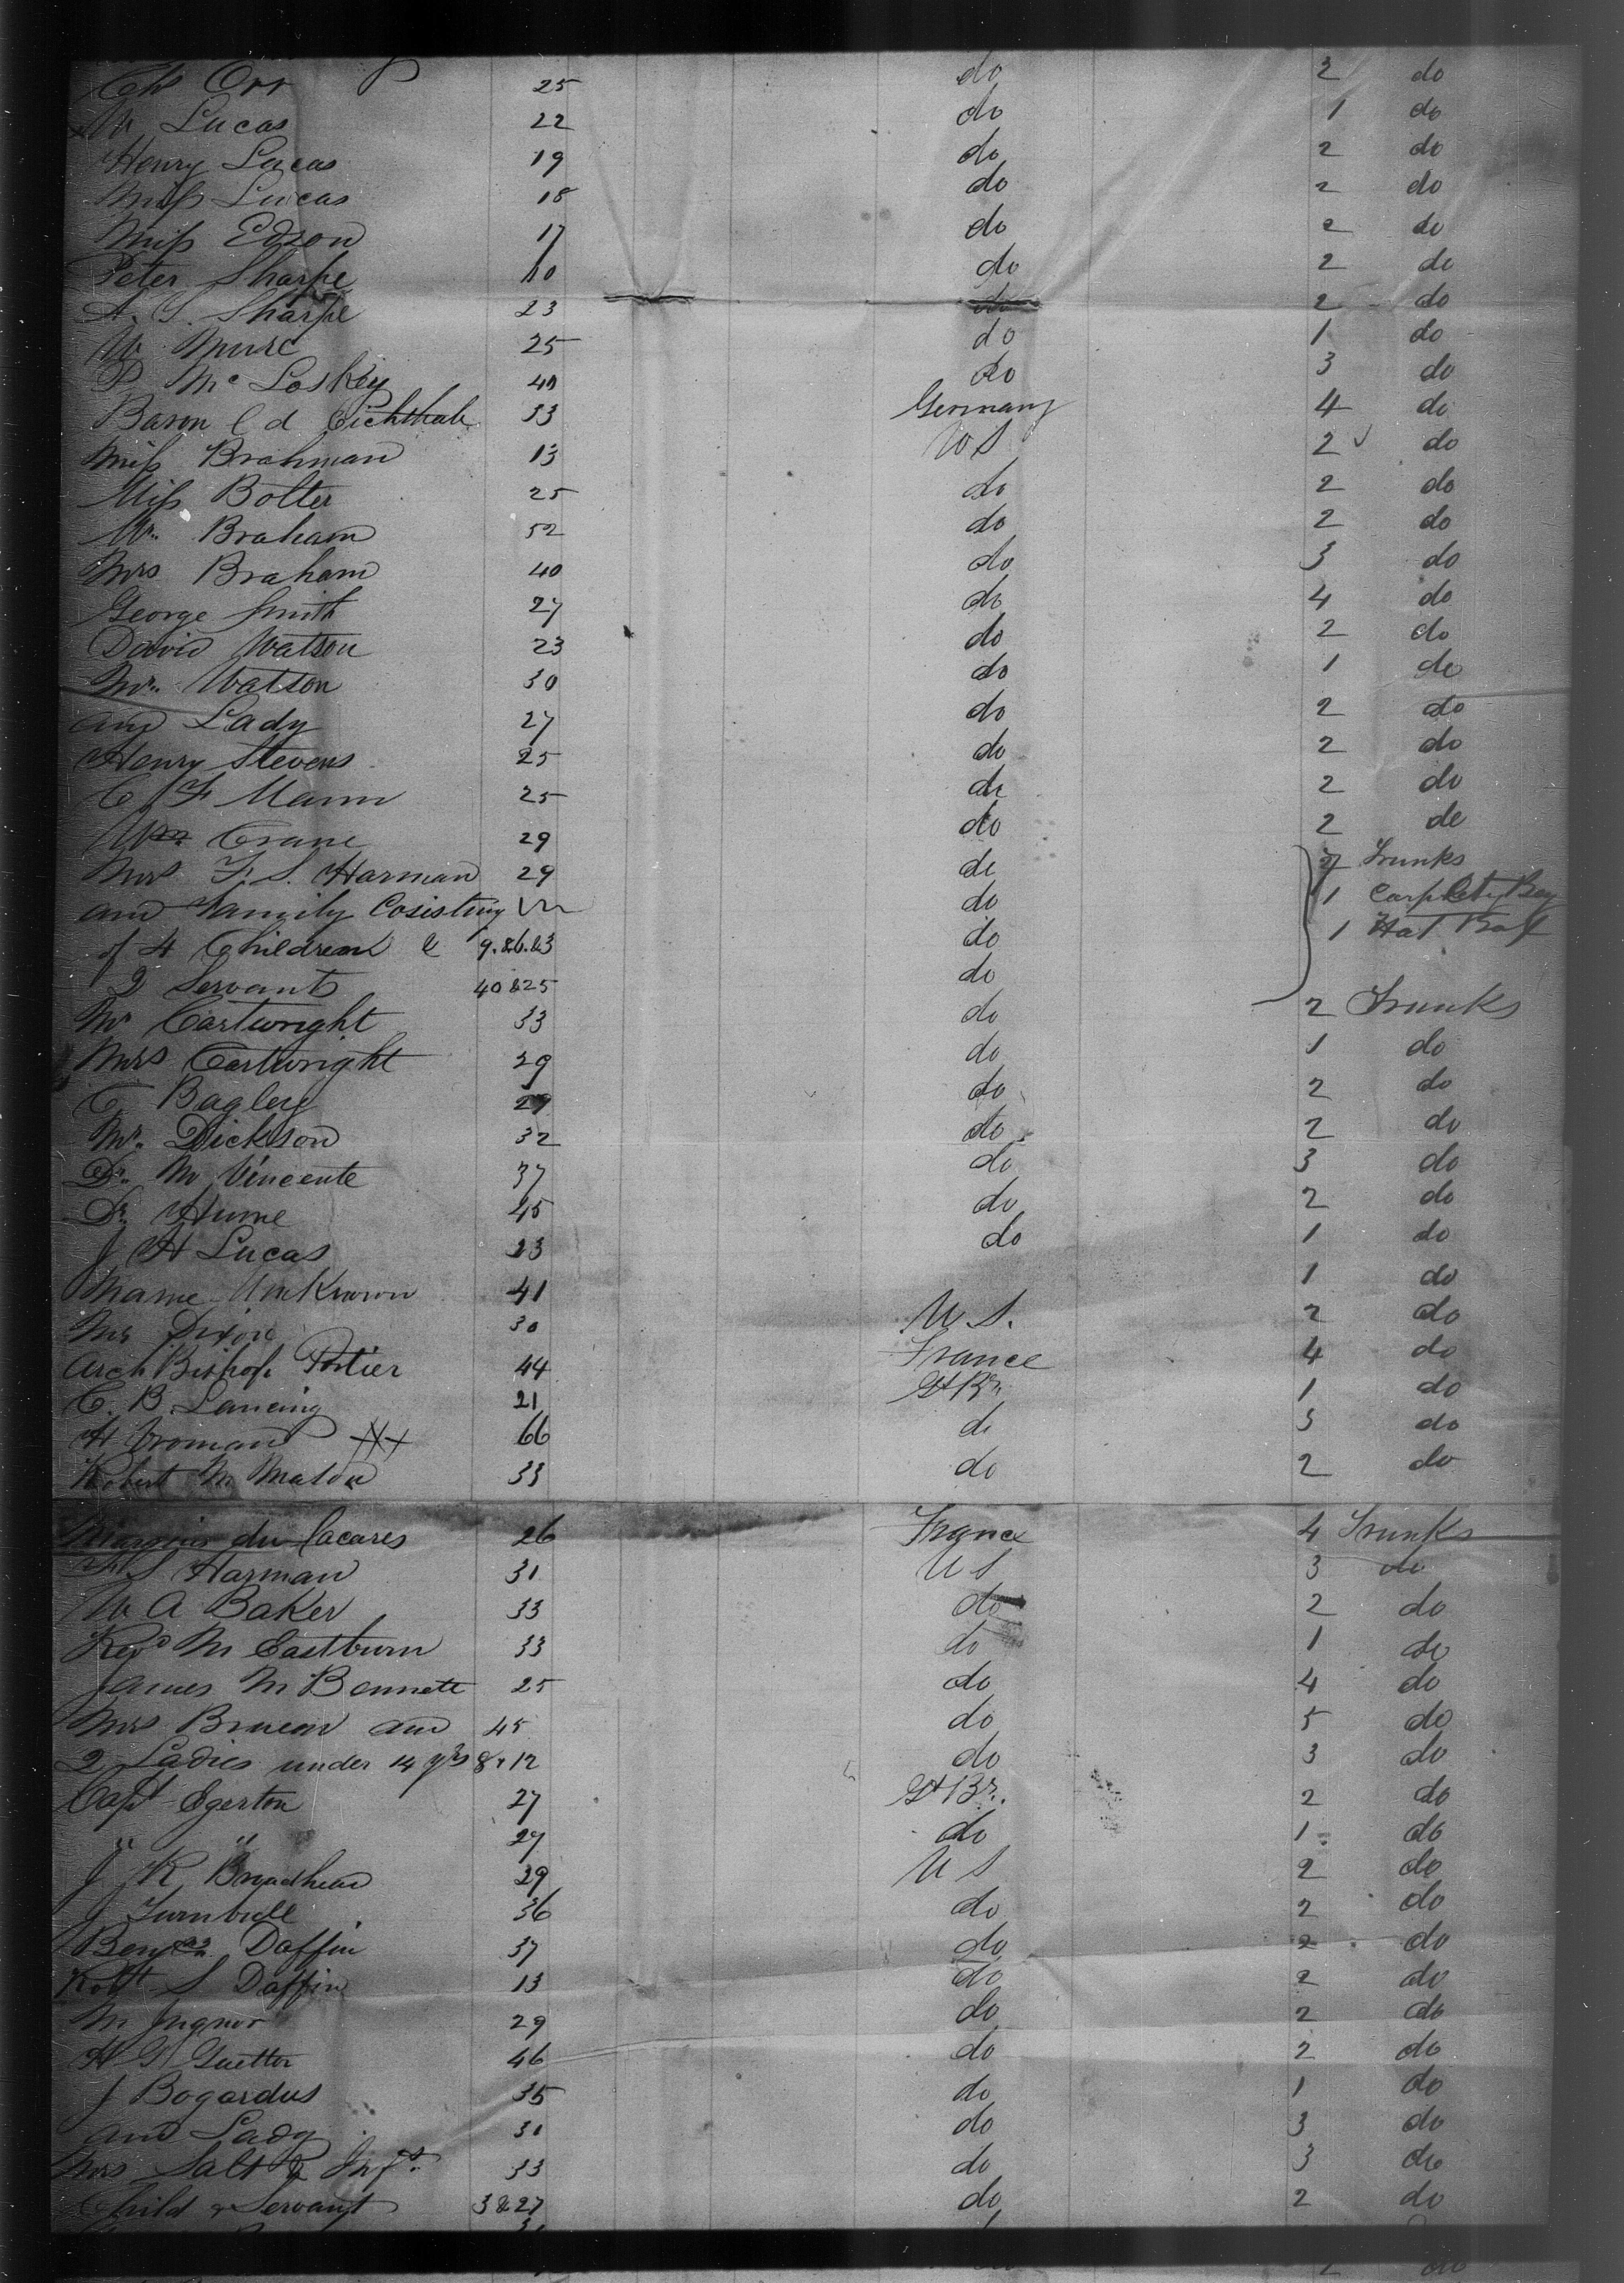 Chs Orr 25 do 2 do
W Lucas 22 do 1 do
Henry Lucas 19 do 2 do
Miss Lucas 18 do 2 do
Miss Edson 17 do 2 do
Peter Sharpe 10 do 2 do
A. S. Sharpe 23 do 2 do
W 25 do 1 do
P McLoskey 40 do 3 do
Baron C d Eichthal 33 Germany 4 do
Miss Brahman 13 U S 2 do
Miss Bolter 25 do 2 do
Mr. Braham 52 do 2 do
Mrs Braham 40 do 3 do
George Smith 27 do 4 do
David Watson 23 do 2 do
Mr. Watson 30 do 1 do
and Lady 27 do 2 do
Henry Stevens 25 do 2 do
C F Mann 25 do 2 do
Wm Crane 29 do 2 do
Mrs F. S. Harman 29 do 7 Trunks
and Family Cosisting do 1 Carpet Bag
of 4 Children & 9.&6.&3 do 1 Hat Box
2 Servants 40 & 25 do
Mr Cartwright 33 do 2 Trunks
Mrs Cartwright 29 do 1 do
C Bagley 29 do 2 do
Mr. Dickson 32 do 2 do
Dr. M Vincente 37 do 3 do
Dr. Hume 45 do 2 do
J H Lucas 23 do 1 do
Name Unknown 41 1 do
Mr Dixon 30 U. S. 2 do
Arch Bishop Portier 44 France 4 do
C. B. Lancing 21 Gt Br. 1 do
H Vroman 66 do 3 do
Robert M Mason 33 do 2 do
Marquis du Cacares 26 France 4 Trunks
S Harman 31 U S 3 do
W A Baker 33 do 2 do
Revd M Eastburn 33 do 1 do
James M Bennett 25 do 4 do
Mrs Bruen and 45 do 5 do
2 Ladies under 14 yrs 8 & 12 do 3 do
Capt Egerton 27 Gt Br. 2 do
" " 27 do 1 do
J R Broadhead 29 U S 2 do
J Turnbull 36 do 2 do
Daffin 37 do 2 do
Robt S Daffin 13 do 2 do
M 29 do 2 do
H G Guetter 46 do 2 do
J Bogardus 35 do 1 do
and Lady 31 do 3 do
Mrs Salt & Inft. 33 do 3 do
Child & Servant 3 & 27 do 2 do